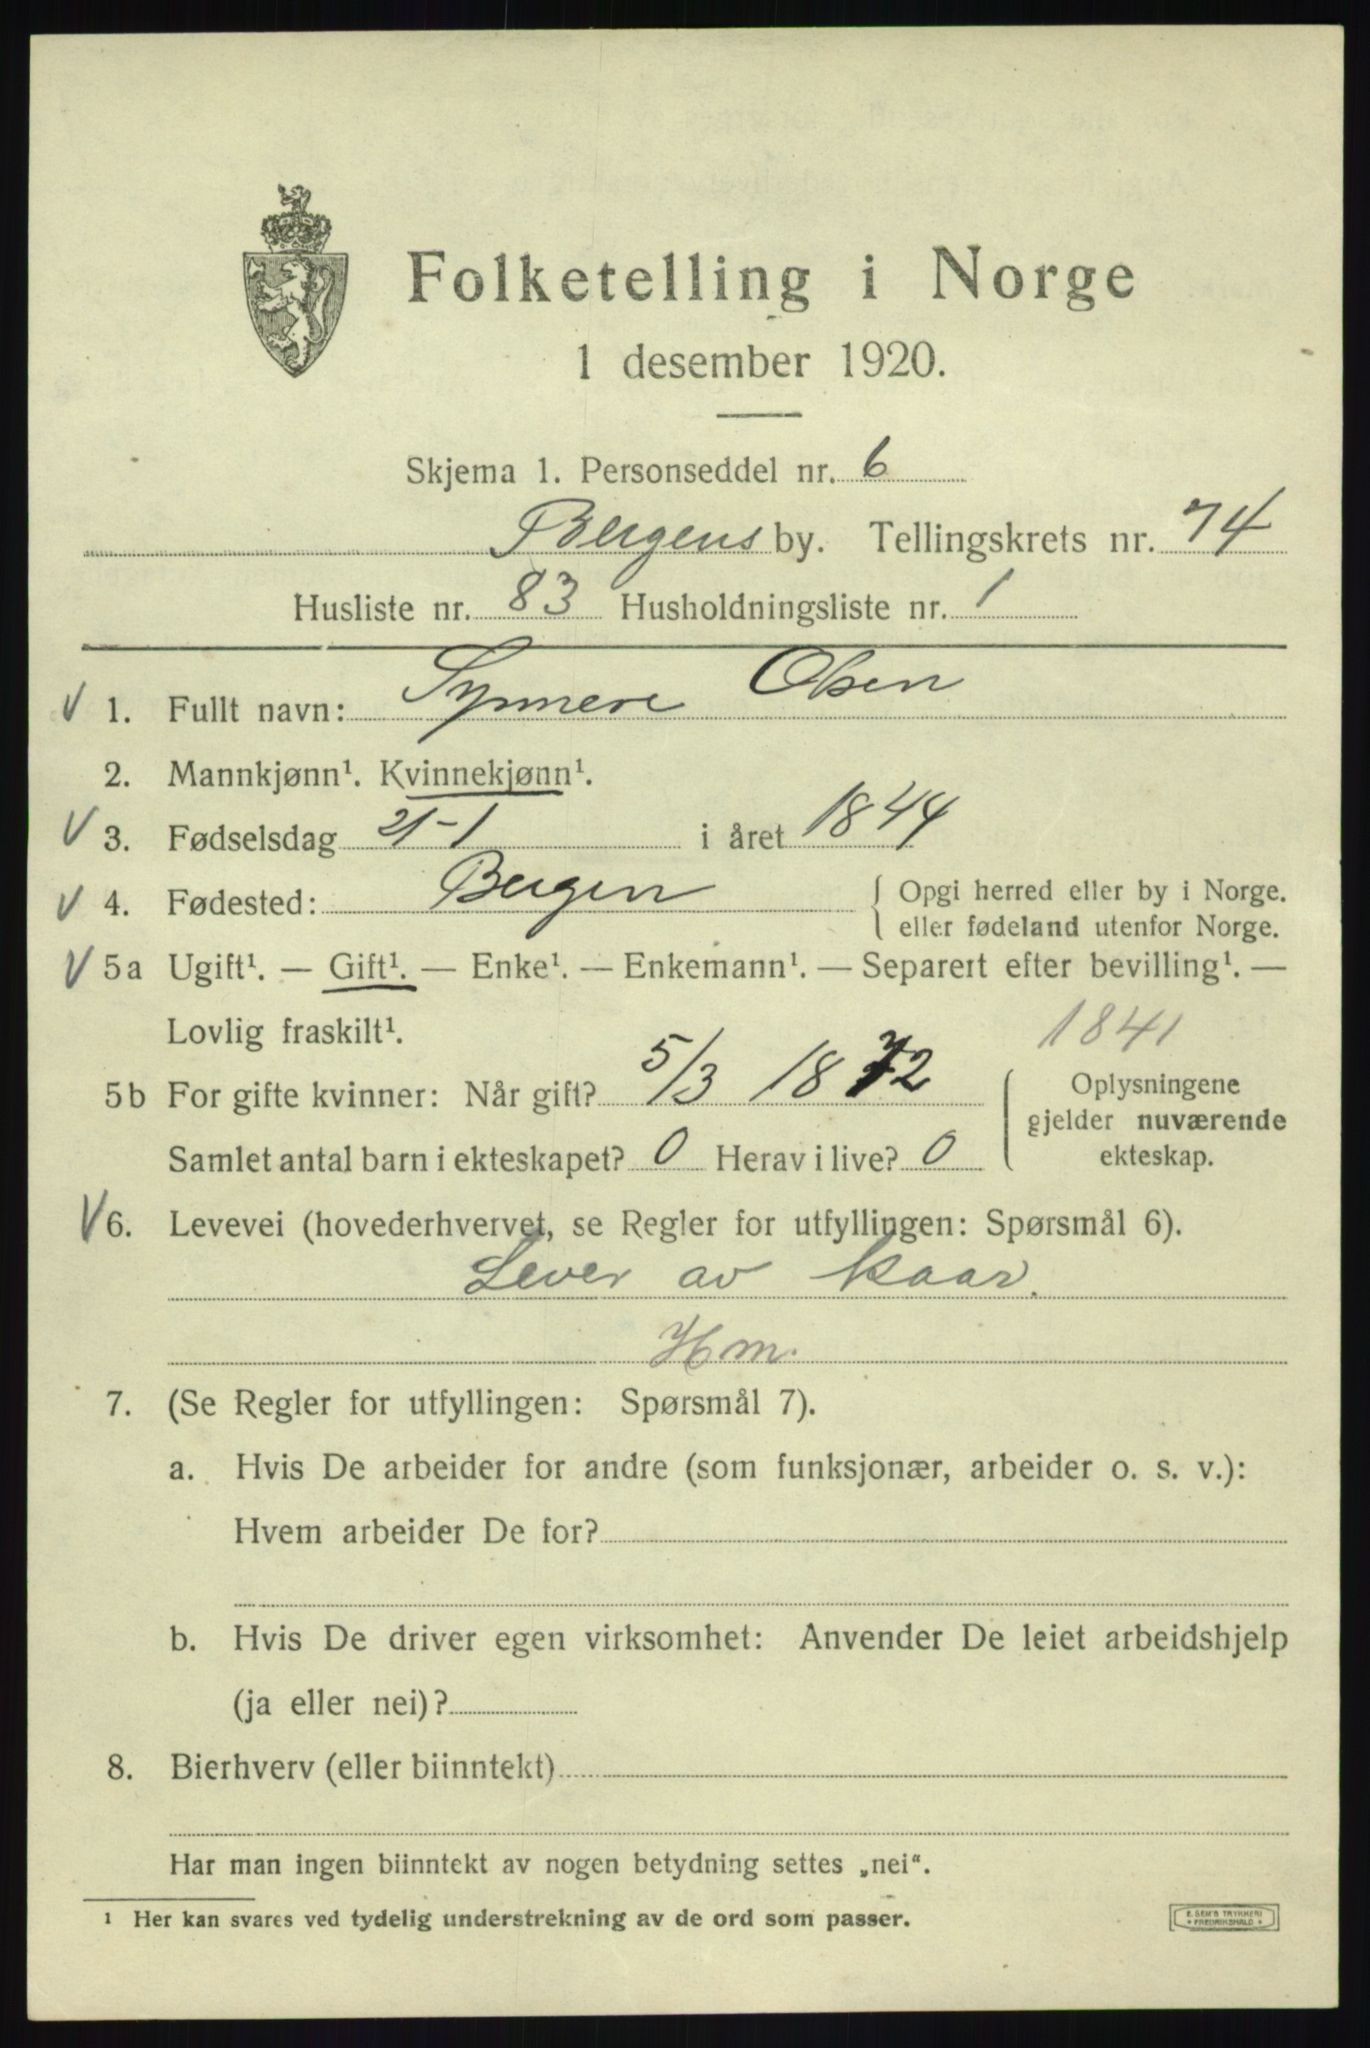 Folketelling i Norge
1 desember 1920.
Skjema 1. Personseddel nr. 6
Bergens by. Tellingskrets nr. 74
Husliste nr. 83 Husholdningsliste nr. 1
V 1. Fullt navn: Synneve Olsen
2. Mannkjønn¹. Kvinnekjønn¹.
V 3. Fødselsdag 21-1 i året 1844
V 4. Fødested: Bergen { Opgi herred eller by i Norge.
eller fødeland utenfor Norge.
V 5a Ugift¹. — Gift¹. — Enke¹. — Enkemann¹. — Separert efter bevilling¹. —
Lovlig fraskilt¹.
1841
5b For gifte kvinner: Når gift? 5/3 1872
Samlet antal barn i ekteskapet? 0 Herav i live? 0
Oplysningene
gjelder nuværende
ekteskap.
V 6. Levevei (hovederhvervet, se Regler for utfyllingen: Spørsmål 6).
Lever av kaar.
Hm.
7. (Se Regler for utfyllingen: Spørsmål 7).
a. Hvis De arbeider for andre (som funksjonær, arbeider o. s. v.):
Hvem arbeider De for?
b. Hvis De driver egen virksomhet: Anvender De leiet arbeidshjelp
(ja eller nei)?
8. Bierhverv (eller biinntekt)
Har man ingen biinntekt av nogen betydning settes „nei“.
¹ Her kan svares ved tydelig understrekning av de ord som passer.
E. SEM'S TRYKKERI
FREDRIKSHALD